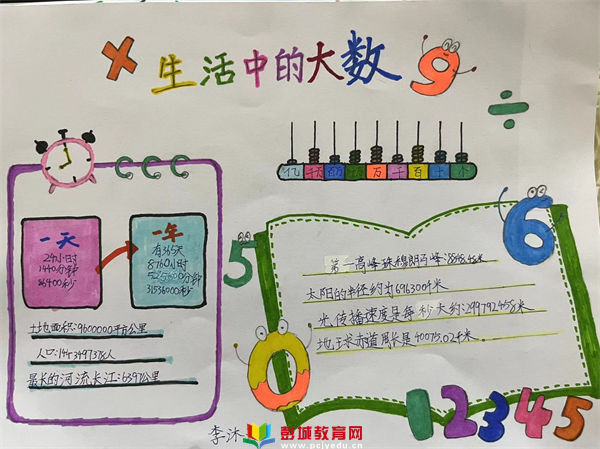 × 生活中的大数 9
÷
亿 千万 百万 十万 万 千 百 十 个
一天
24小时
1440分钟
86400秒
一年
有365天
8760小时
525600分钟
31536000秒
土地面积:9600000平方公里
人口:1443497378人
最长的河流长江:6397公里
5
6
第一高峰珠穆朗玛峰:8848.48米
太阳的半径约为696300千米
光传播速度是每秒大约:299792458米
地球赤道周长是40075.024米
0
12345
李沐
彭城教育网
www.pcjyedu.cn